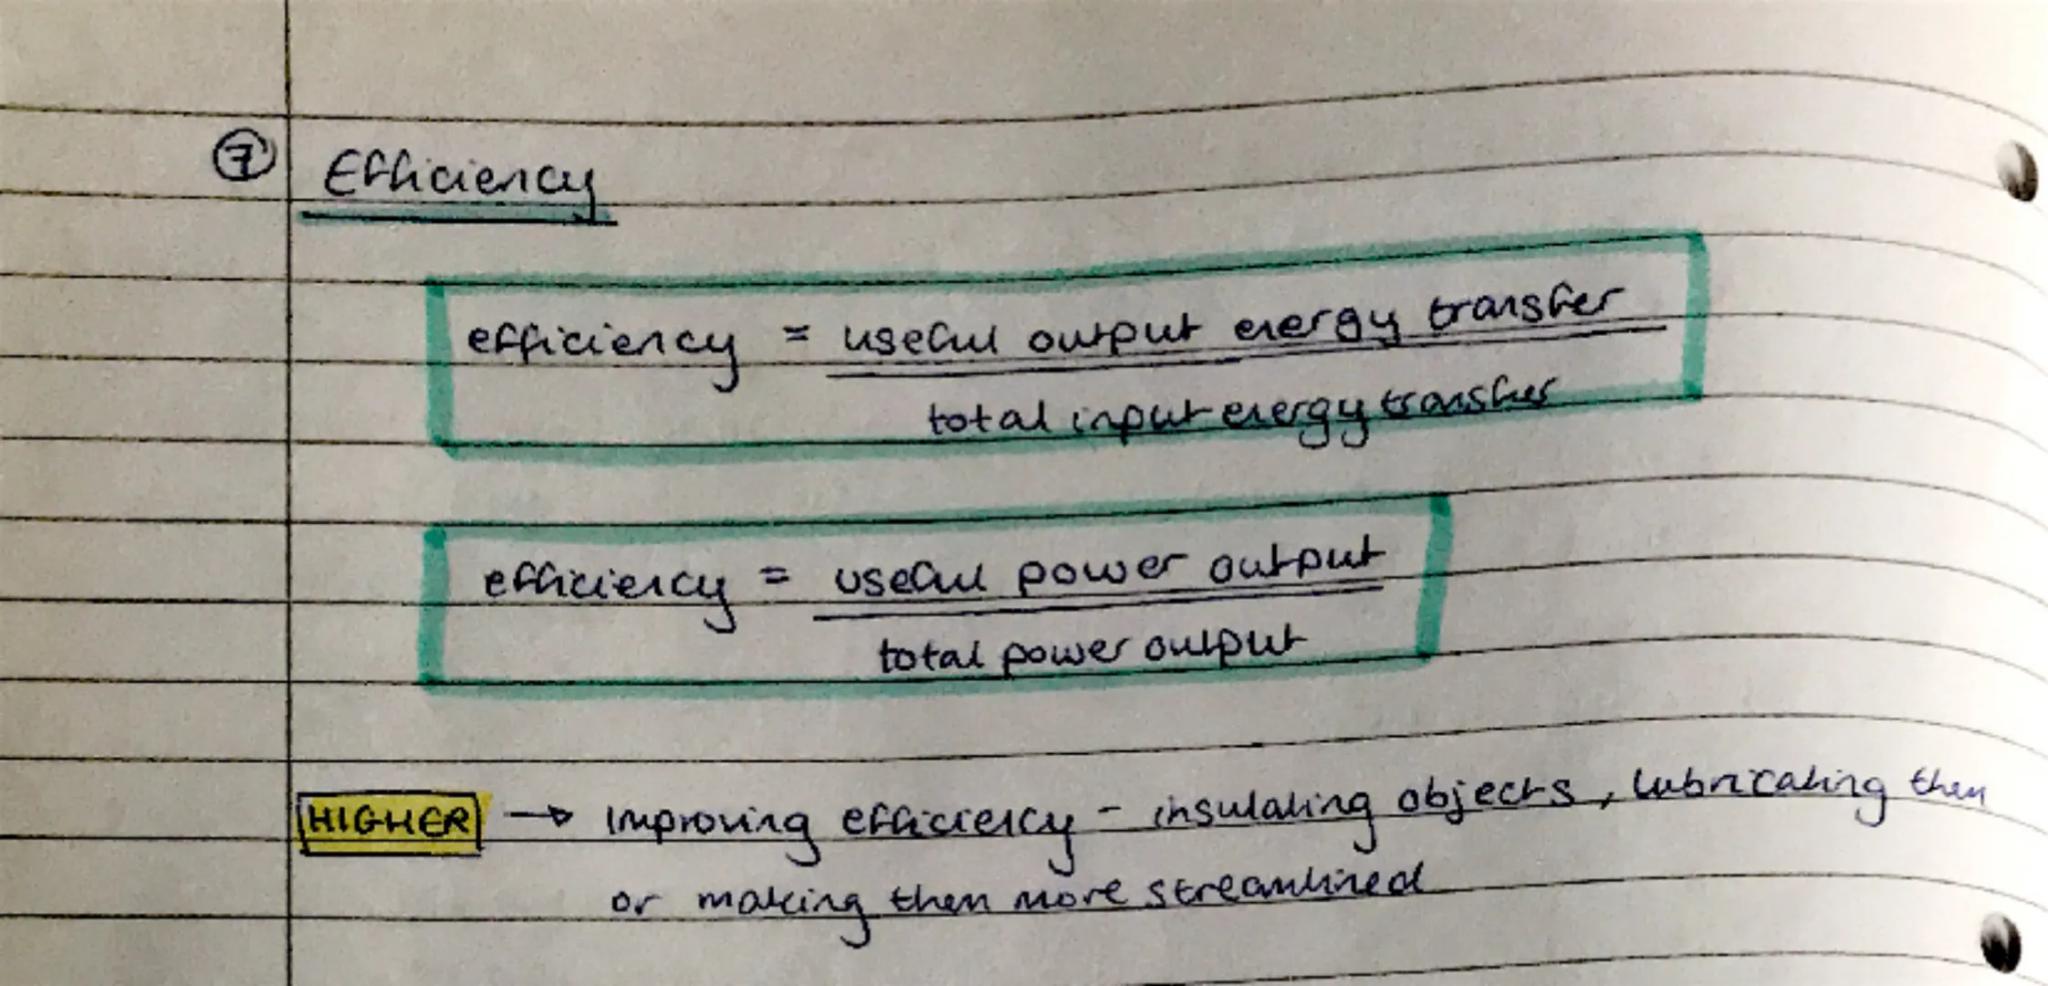 ⑦ Efficiency
efficiency = useful output energy transfer
total input energy transfer
efficiency = useful power output
total power output
HIGHER → improving efficiency - insulating objects, lubricating them
or making them more streamlined